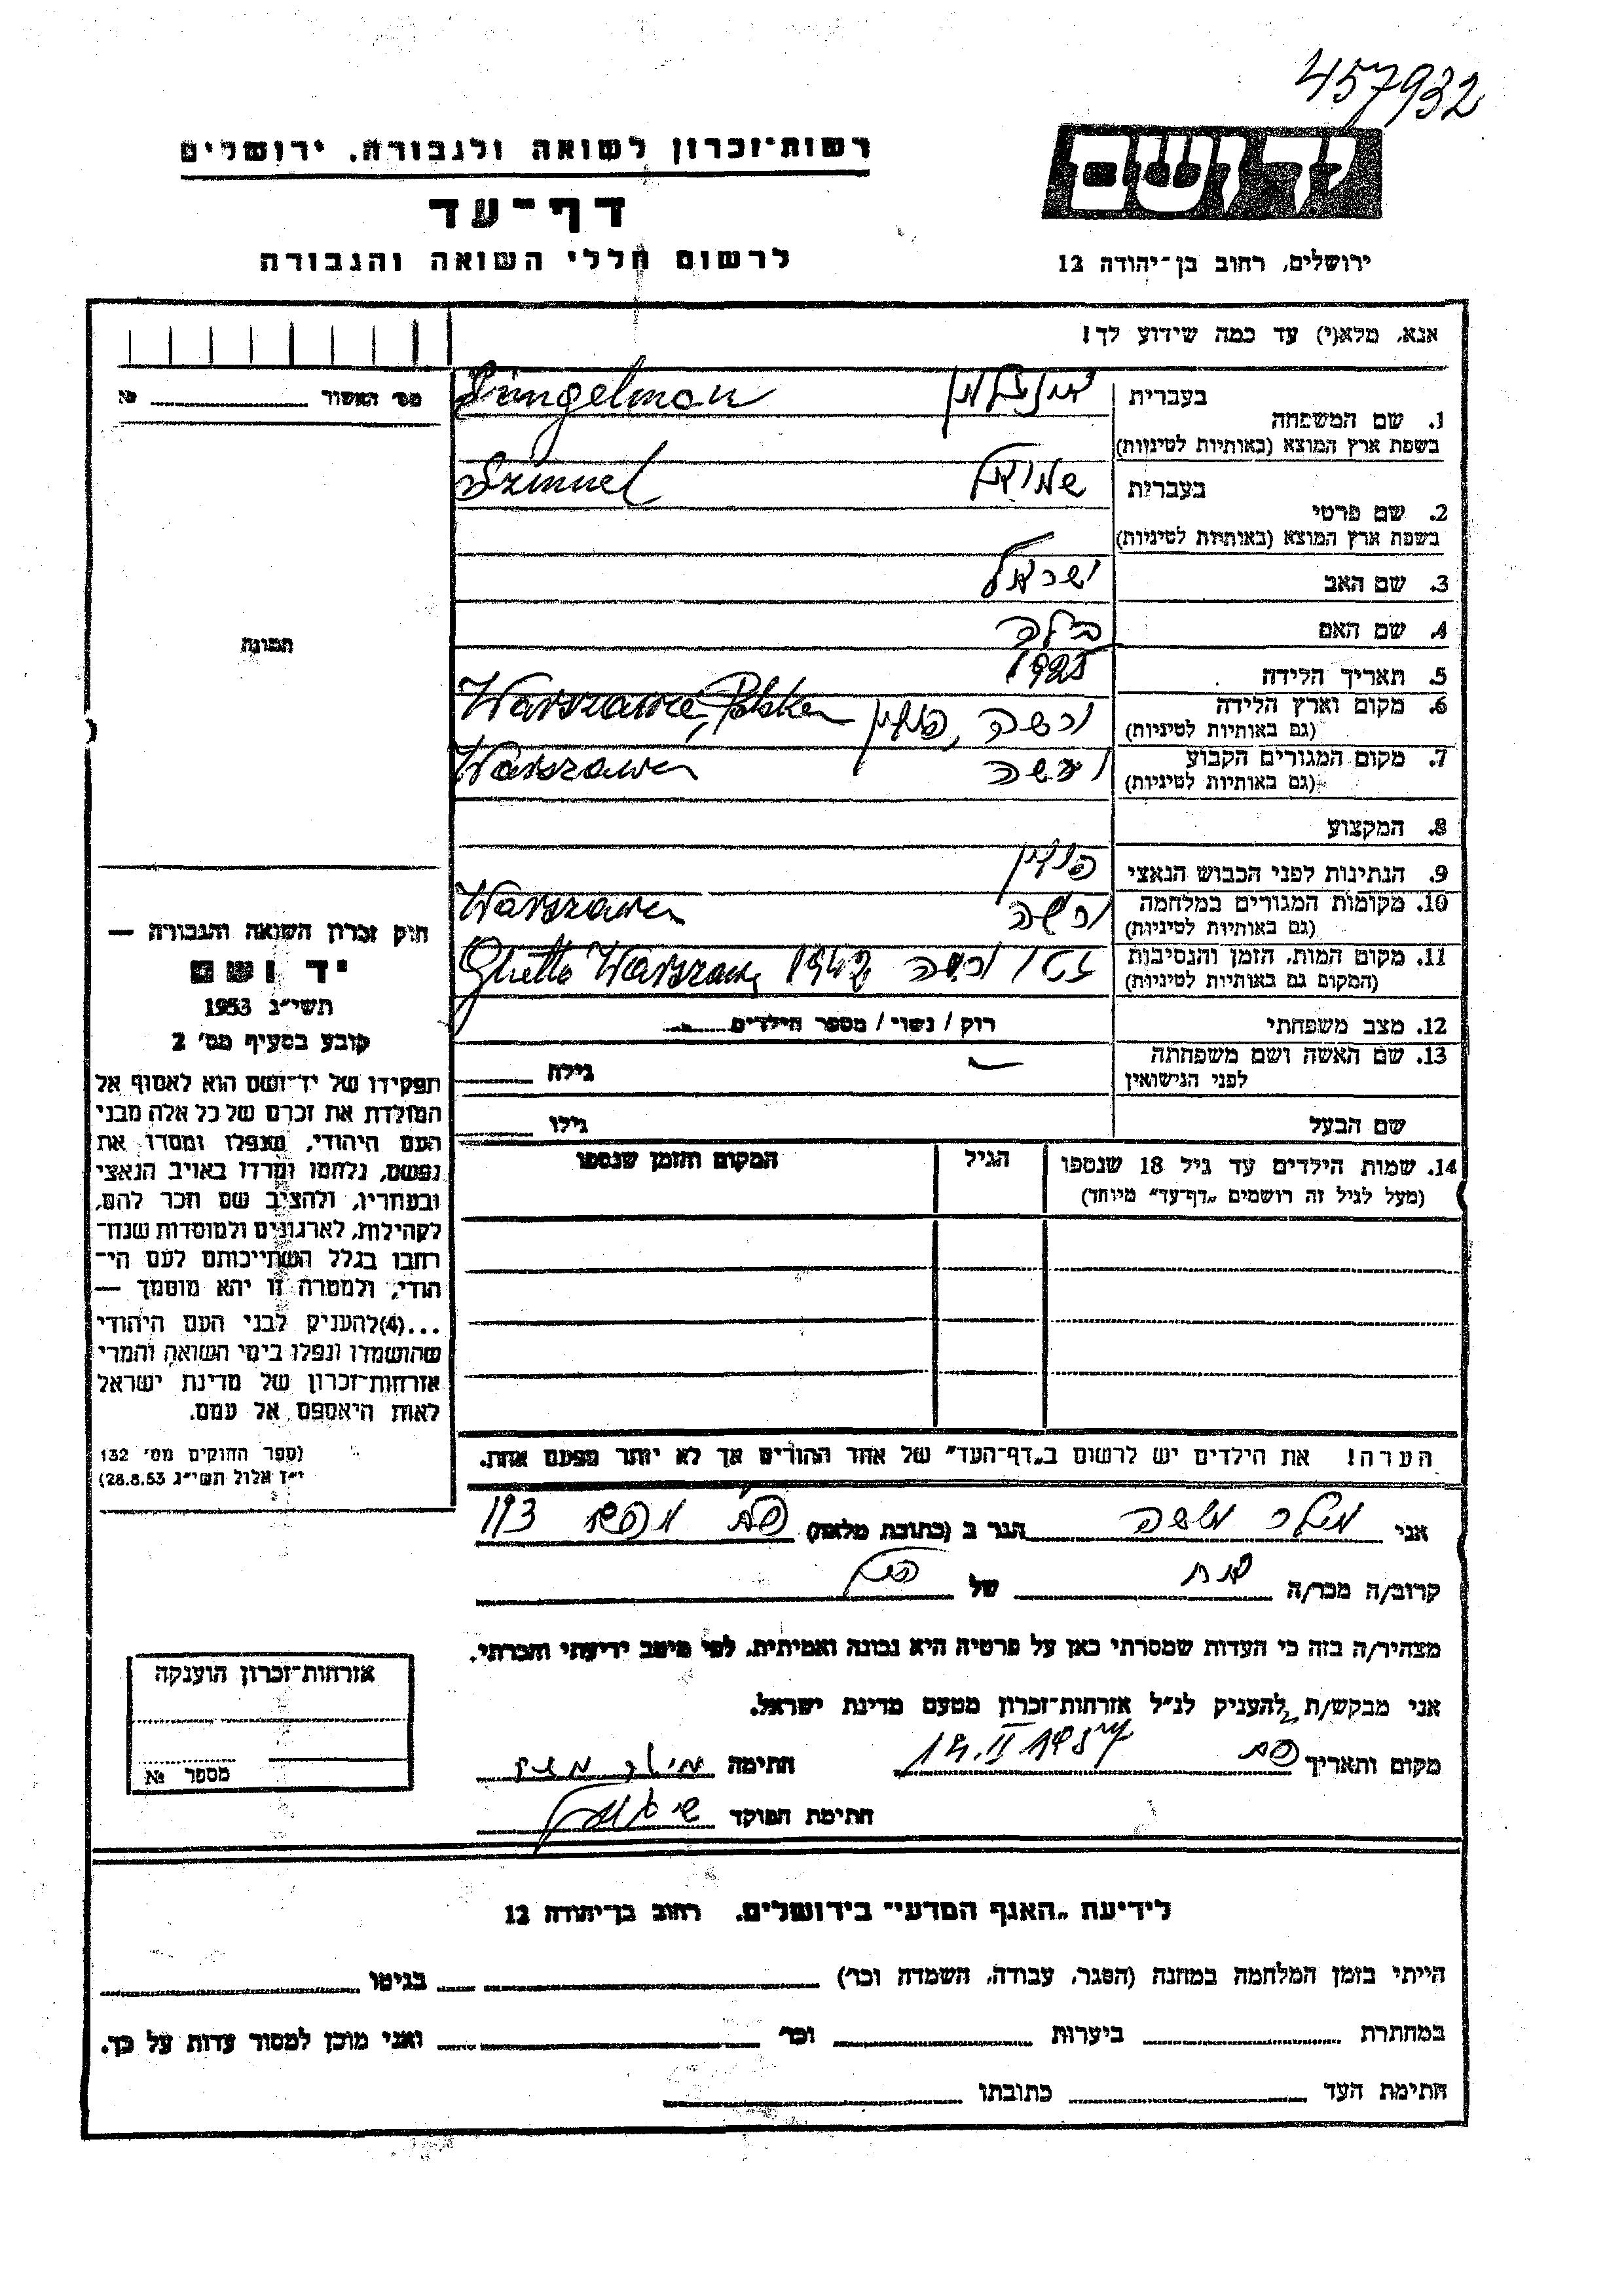 457932
רשות־זכרון לשואה ולגבורה, ירושלים
יד ושם
דף־עד
לרשום חללי השואה והגבורה
ירושלים, רחוב בן־יהודה 12
אנא, מלא(י) עד כמה שידוע לך!
מס׳ האשור № 
1. שם המשפחה בעברית
בשפת ארץ המוצא (באותיות לטיניות)
2. שם פרטי בעברית שמואל Szmuel
בשפת ארץ המוצא (באותיות לטיניות)
3. שם האב ישראל
4. שם האם בילה
5. תאריך הלידה 1925
6. מקום וארץ הלידה ורשה, פולין Warszawa, Polska
(גם באותיות לטיניות)
7. מקום המגורים הקבוע ורשה Warszawa
(גם באותיות לטיניות)
8. המקצוע
9. הנתינות לפני הכבוש הנאצי פולין
10. מקומות המגורים במלחמה ורשה Warszawa
(גם באותיות לטיניות)
11. מקום המות, הזמן והנסיבות גטו ורשה 1942 Ghetto Warszawa
(המקום גם באותיות לטיניות)
12. מצב משפחתי רוק / נשוי / מספר הילדים
13. שם האשה ושם משפחתה גילה
לפני הנישואין
שם הבעל גילו
14. שמות הילדים עד גיל 18 שנספו הגיל המקום והזמן שנספו
(מעל לגיל זה רושמים „דף־עד״ מיוחד)
הערה! את הילדים יש לרשום ב„דף־העד״ של אחד ההורים אך לא יותר מפעם אחת.
תמונה
חוק זכרון השואה והגבורה —
יד ושם
תשי״ג 1953
קובע בסעיף מס׳ 2
תפקידו של יד־ושם הוא לאסוף אל
המולדת את זכרם של כל אלה מבני
העם היהודי, שנפלו ומסרו את
נפשם, נלחמו ומרדו באויב הנאצי
ובעוזריו, ולהציב שם וזכר להם,
לקהילות, לארגונים ולמוסדות שנח־
רבו בגלל השתייכותם לעם הי־
הודי, ולמטרה זו יהא מוסמך —
...(4)להעניק לבני העם היהודי
שהושמדו ונפלו בימי השואה והמרי
אזרחות־זכרון של מדינת ישראל
לאות היאספם אל עמם.
(ספר החוקים מס׳ 132
י״ז אלול תשי״ג 28.8.53)
אני מילר משה הגר ב (כתובת מלאה)
קרוב/ה מכר/ה של
מצהיר/ה בזה כי העדות שמסרתי כאן על פרטיה היא נכונה ואמיתית, לפי מיטב ידיעתי והכרתי.
אני מבקש/ת להעניק לנ״ל אזרחות־זכרון מטעם מדינת ישראל.
מקום ותאריך 14.II 1957 חתימה מילר משה
חתימת הפוקד
אזרחות־זכרון הוענקה
מספר №
לידיעת „האגף המדעי״ בירושלים, רחוב בן־יהודה 12
הייתי בזמן המלחמה במחנה (הסגר, עבודה, השמדה וכו׳) בגיטו
במחתרת ביערות וכו׳ ואני מוכן למסור עדות על כך.
חתימת העד כתובתו